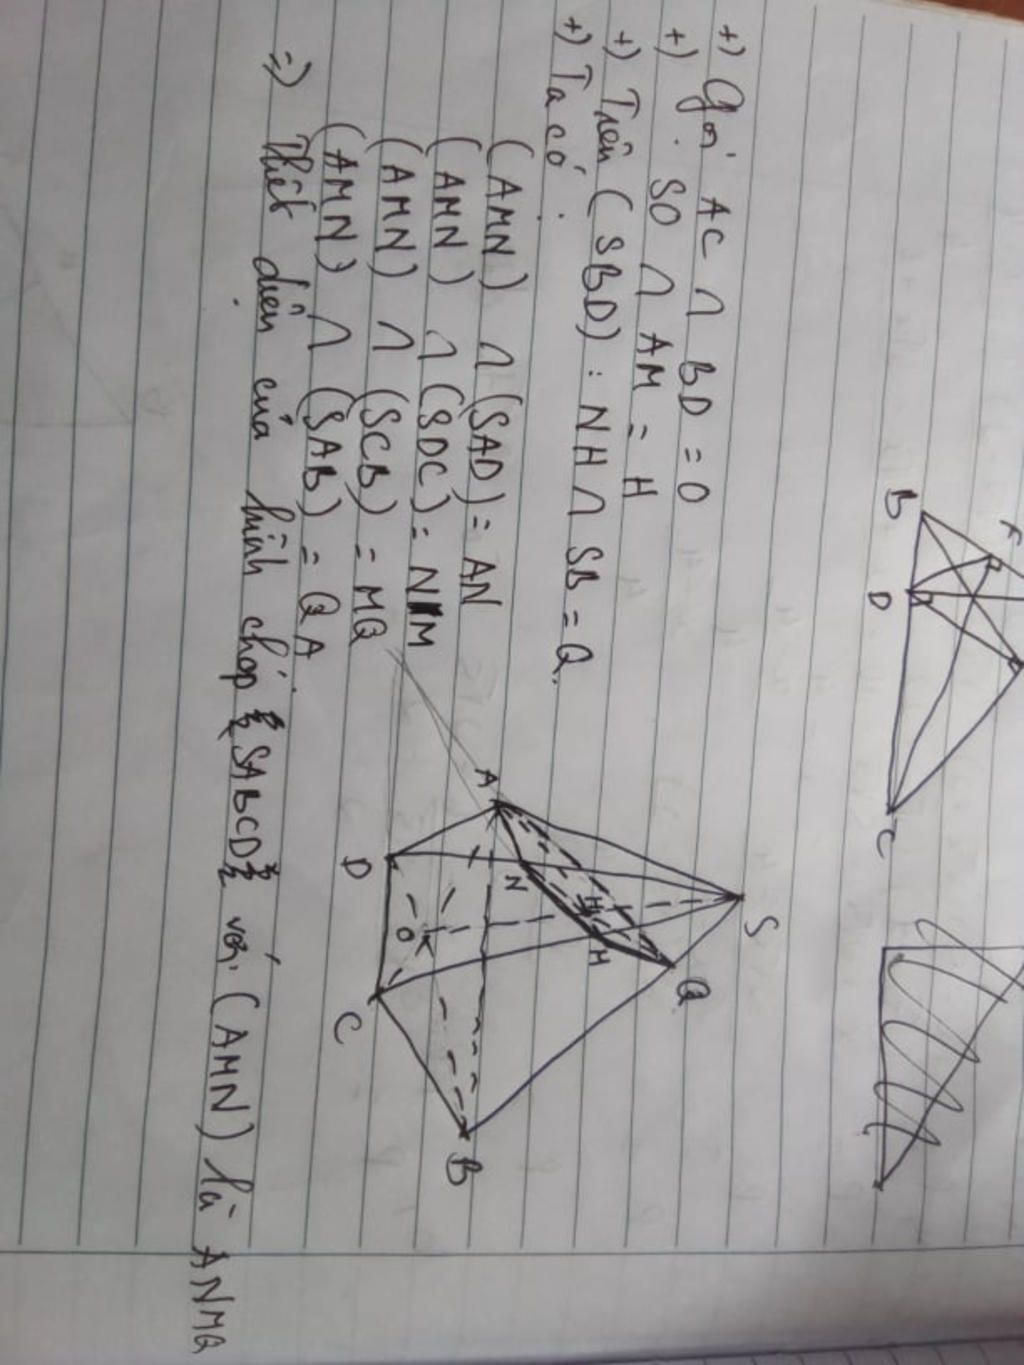 +) Gọi AC ∩ BD = O
+) SO ∩ AM = H
+) Trên (SBD) : NH ∩ SB = Q.
+) Ta có :
(AMN) ∩ (SAD) = AN
(AMN) ∩ (SDC) = NM
(AMN) ∩ (SCB) = MQ
(AMN) ∩ (SAB) = QA
=) Thiết diện của hình chóp SABCD với (AMN) là ANMQ
F
B
D
C
S
Q
A
N
H
M
D
O
C
B